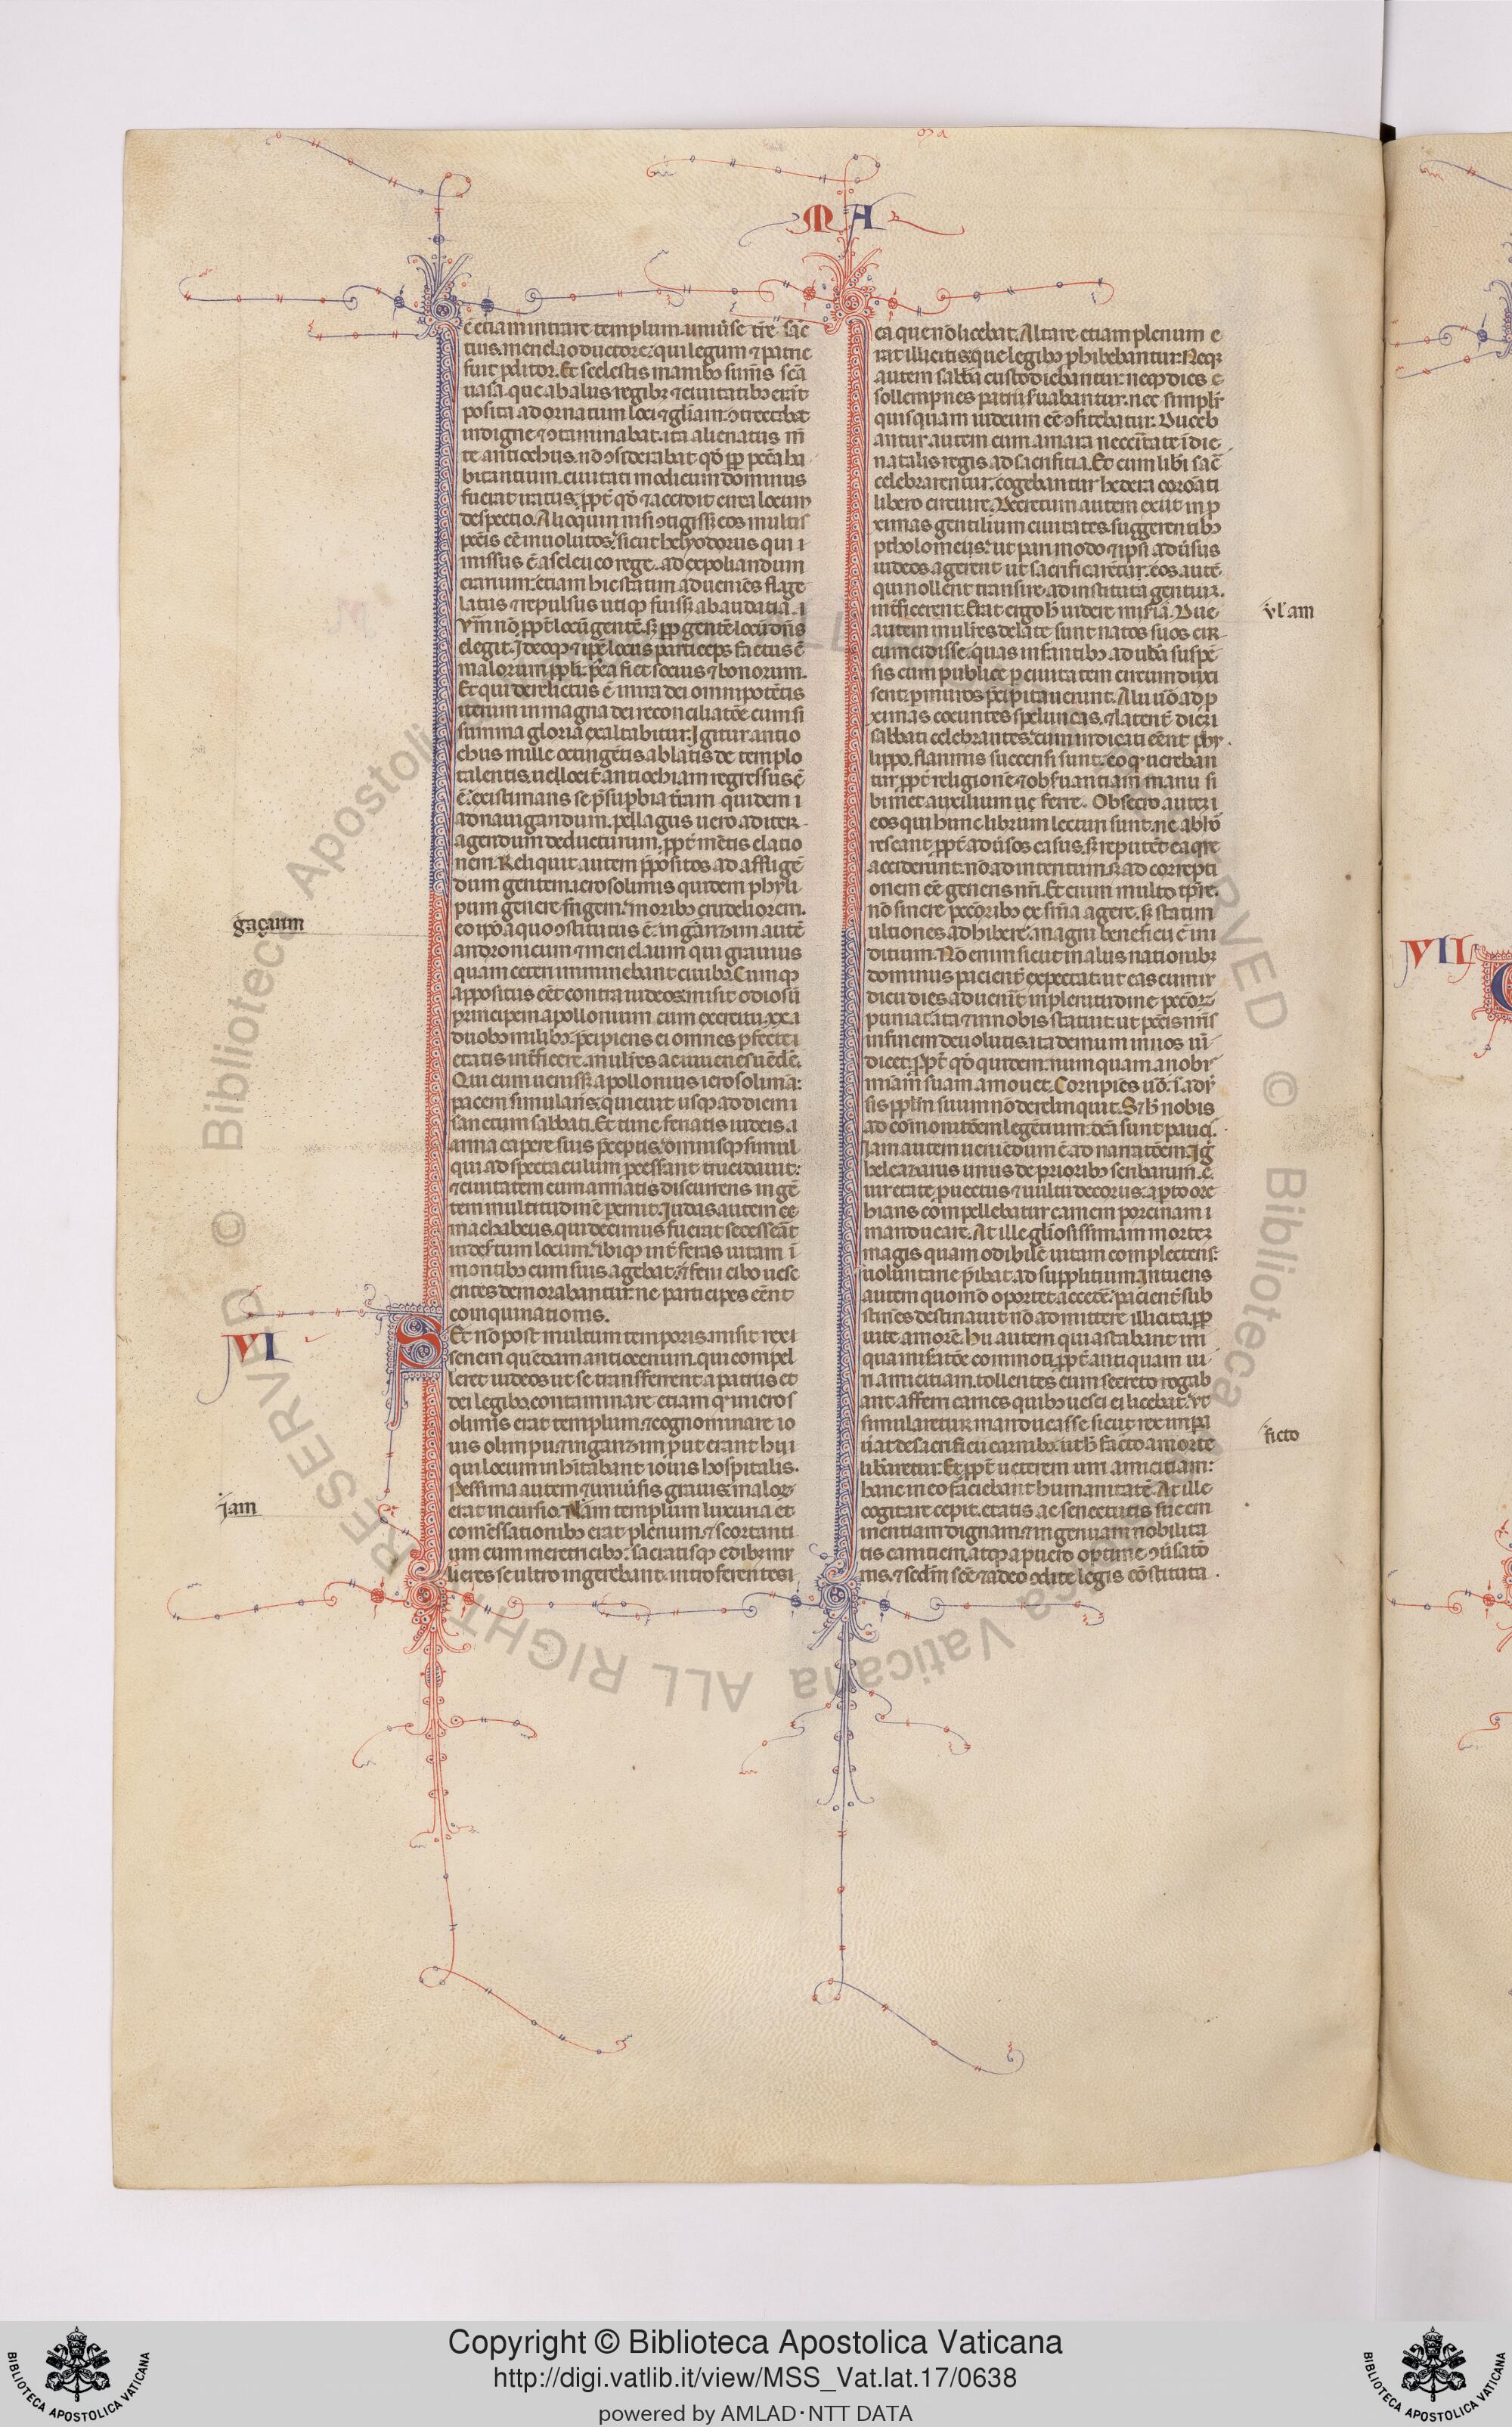 MA
c̄ etiam intrare templum. uniu̾se t̾re sāc
tius. menelao ductore. qui legum ⁊ patrie
fuit p̱ditor. Et scelestis manibꝰ sum̄s sc̄a
uasa. que ab alijs regibꝫ ⁊ ciuitatibꝰ erāt
posita ad ornatum loci ⁊ gl̄iam. ꝯtrectabat
indigne ⁊ ꝯtaminabat. ita alienatus m̄
te antiochus. nō ꝯsiderabat qd̄ ꝓp̱ pc̄a ha
bitantium. ciuitati modicum dominus
fuerat iratus. ꝓpt̄ qd̄ ⁊ accidit circa locum
despectio. Alioquin nisi ꝯtigiss̄ eos multis
pc̄is ēē inuolutos. sicut helyodorus qui i
missus ē a seleuco rege. ad expoliandum
erarium. etiam hic statim adueniēs flage
latus ⁊ repulsus utiqꝫ fuiss̄ ab audatia. i
Vm̄ nō ꝓpt̄ locū gentē. sꝫ ꝓp̱ gentē locū dn̄s
elegit. Ideoqꝫ ⁊ ip̄e locus particeps factus ē
malorum pp̄li. p̄ea fiet socius ⁊ bonorum.
Et qui derelictus ē in ira dei omnipotētis
iterum in magna dei reconciliatōe cum si
summa gloria exaltabitur. Igitur antio
chus mille octingētis ablatis de templo
talentis. uelocit̄ antiochiam regressus ē
ē. existimans se p̄ sup̱bia t̄ram quidem i
ad nauigandum. pellagus uero ad iter
agendum deducturum. ꝓpt̄ mētis elatio
nem. Reliquit autem p̄positos ad affligē
dum gentem. ierosolimis quidem phyli
pum genere frigem. moribꝰ crudeliorem.
eo ip̄o a quo ꝯstitutus ē. in garizim autē
andronicum ⁊ menelaum qui grauius
quam ceteri imminebant ciuibꝫ. Cumqꝫ
appositus eēt contra iudeos. misit odiosū
principem apollonium cum exercitu. xx. i
duobꝰ milibꝰ. p̄cipiens ei omnes p̱fecte i
etatis int̄ficere. mulīes ac iuuenes uēdē.
Qui cum ueniss̄ apollonius ierosolimā:
pacem simulans. quieuit usqꝫ ad diem i
sanctum sabbati. Et tunc feriatis iudeis. i
arma capere suis p̄cepit. omnisqꝫ simul
qui ad spectaculum p̄cessant trucidauit:
⁊ ciuitatem cum armatis discurrens ingē
tem multitudinē p̱emit. Iudas autem ⁊
machabeus. qui decimus fuerat secesserāt
in des̄tum locum. ibiqꝫ int̄ feras uitam ī
montibꝰ cum suis agebat. ⁊ feni cibo uesc
entes demorabantur. ne participes eēnt
coinquinationis.
Set nō post multum temporis. misit rex i
senem quēdam antiocenum. qui compel
leret iudeos ut se transferrent a patriis et
dei legibꝰ. contaminare etiam qꝫ in ieros
olimis erat templum. ⁊ cognominare io
uis olimpii ⁊ in garizim put erant hii i
qui locum inhītabant iouis hospitalis.
Pessima autem ⁊ uniu̾sis grauis. maloꝝ
erat incursio. Nam templum luxuria et
comessationibꝰ erat plenum. ⁊ scortanti
um cum meretricibꝰ: sacratisqꝫ edibꝫ mr
lieres se ultro ingerebant. intro ferentes i
gaçarim
VI
jam
ea que nō licebat. Altare etiam plenum e
rat illicitis. que legibꝰ ꝓhibebantur. Neqꝫ
autem sabb̄a custodiebantur. neqꝫ dies e
sollempnes patrii s̄uabantur. nec simpli
quisquam iudeum eē ꝯfitebatur. Duceb
antur autem cum amara necc̄itate ī die
natalis regis ad sacrifitia. Et cum lib̄i sac̄
celebrarentur. cogebantur hedera coroāti
libero circuire. Decretum autem exiit in ꝓ
ximas gentilium ciuitates. suggerentibꝰ
ptholomeis. ut pari modo ⁊ ip̄i adū̾sus
iudeos agerent ut sacrificarētur. eos autē
qui nollent transire. ad instituta gentium.
int̄ficerent. Erat ergo h̄ uidere mis̄iā. Due
autem mulīes delate sunt natos suos cir
cumcidisse. quas infantibꝰ ad ub̄a suspē
sis cum publice p̱ ciuitatem circumduxi
sent. p̱ muros p̄cipitauerunt. Alii uō ad ꝓ
ximas coeuntes speluncas. ⁊ latent̄ diem i
sabbati celebrantes. cum indicati eēnt phy
lippo. flammis succensi sunt. eo qꝫ uereban
tur ꝓpt̄ religionē ⁊ obs̄uantiam manu si
bimet auxilium ṇe ferre. Obsecro autem i
eos qui hunc librum lecturi sunt. ne abhō
rescant ꝓpt̄ adū̾sos casus. sꝫ reputēt ea q̄
acciderunt. nō ad interitum. sꝫ ad correpti
onem eē generis nr̄i. Et enim multo tp̄re.
nō sinere pecc̄oribꝰ ex sn̄ia agere. sꝫ statim
ultiones adhibere. magni beneficii ē in
dicium. Nō enim sicut in alijs nationibꝫ
dominus pacient̄ expectat. ut eas cum iu
dicii dies aduen̄it in plenitudine pecc̄oꝝ
puniat. ita ⁊ in nobis statuit. ut pc̄is nr̄is
in finem deuolutis. ita demum in nos uī
dicet. Ꝓpt̄ qd̄ quidem. num quam a nobis
mīam suam amouet. Corripiēs uō. ī adū̾
sis pp̄lm̄ suum nō derelinquit. Sꝫ h̄ nobis
ad cōmonitōem legētium. dc̄a sunt paucis.
Iam autem ueniēdum ē ad narratōem. Ig̊
heleazarus unus de prioribꝰ scribarum. ē
uir etate ꝓuectus ⁊ uultu decorus. ap̱to ore
hians compellebatur carnem porcinam i
manducare. At ille gl̄iosissimam mortem
magis quam odibilē uitam complectens:
uoluntarie p̄ibat ad supplitium. Intuens
autem quomō oportet accedē. pacient̄ sub
stinēs. destinauit nō admittere illicita. ꝓp̱
uite amorē. Hii autem qui astabant ini
qua mis̄atōe commoti. ꝓpt̄ antiquam ui
ri amicitiam. tollentes eum secreto rogab
ant afferri carnes quibꝰ uesci ei licebat. ut
simularetur manducasse sicut rex imp̱a
ū̾at de sacrificii carnibꝰ. ut h̄ facto a morte
lib̄aretur. Et ꝓpt̄ ueterem uiri amicitiam:
hanc in eo faciebant humanitatē. At ille
cogitare cepit. etatis ac senectutis sue em
inentiam dignam. ⁊ ingenuam nobilita
tis canitiem. atqꝫ a puero optime ꝯū̾satō
nis. ⁊ sed̄m sc̄e ⁊ a deo ꝯdite legis cōstituta.
vl̄am
ficto
VII
Copyright © Biblioteca Apostolica Vaticana
http://digi.vatlib.it/view/MSS_Vat.lat.17/0638
powered by AMLAD·NTT DATA